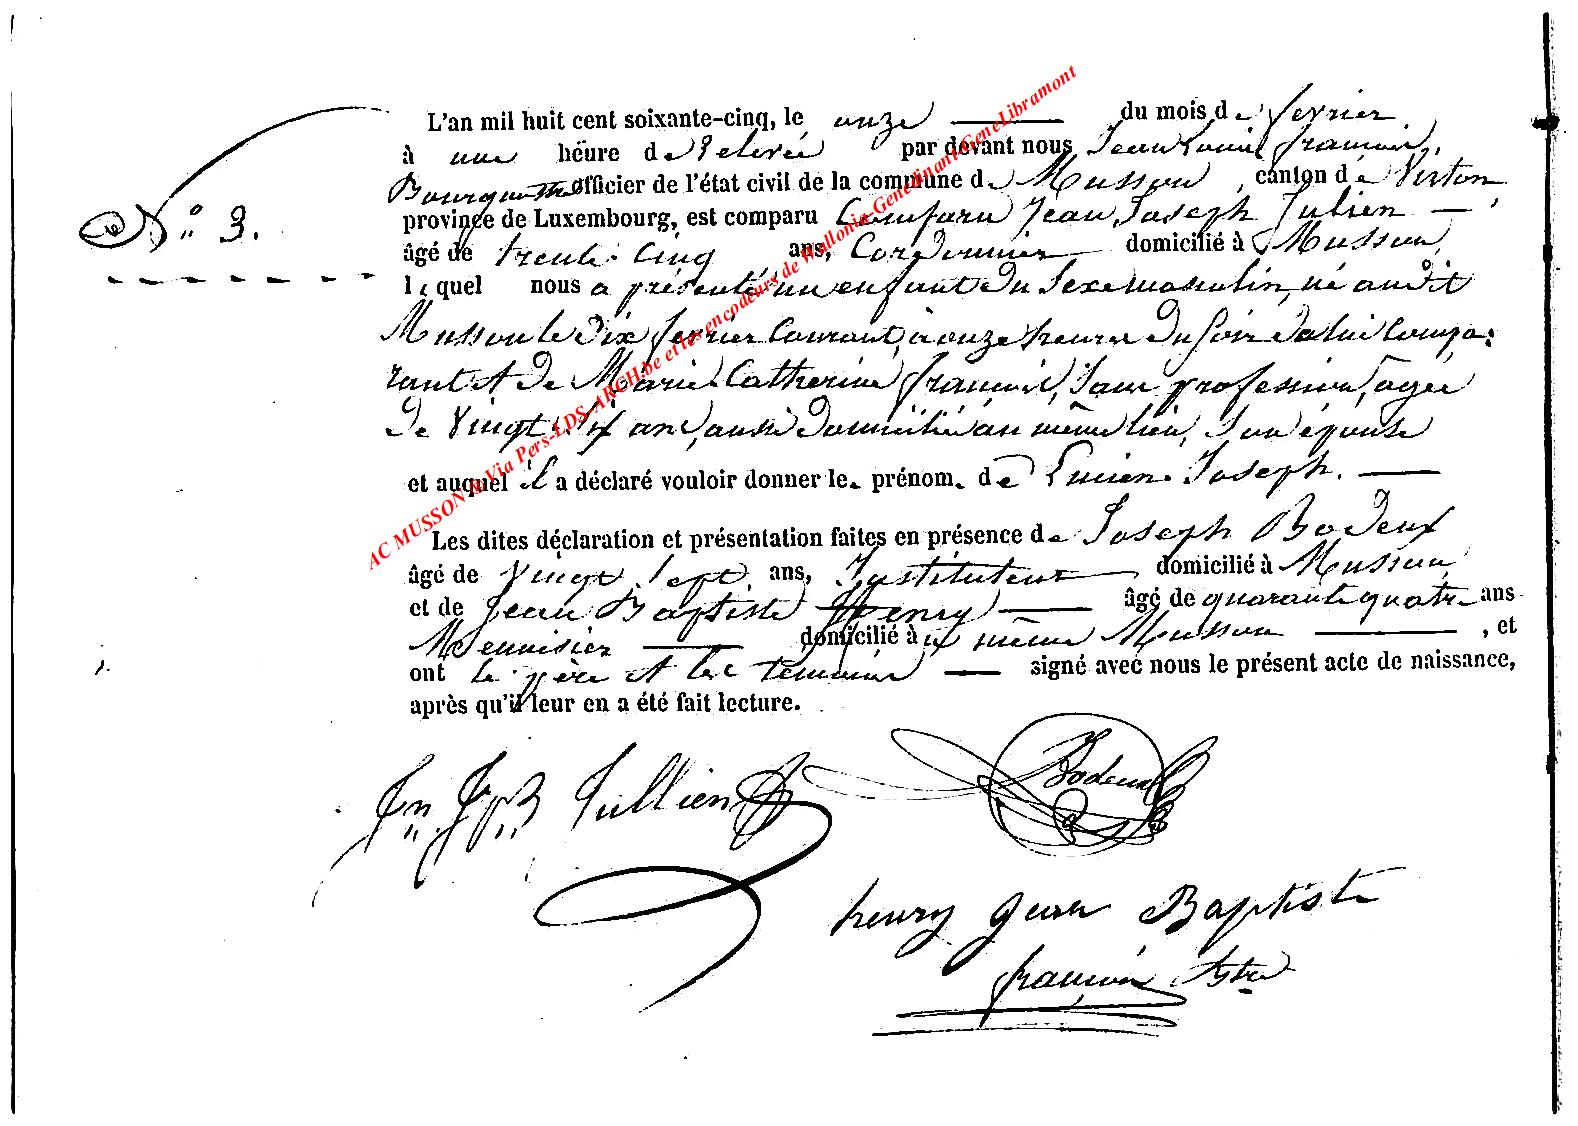 L'an mil huit cent soixante-cinq, le onze du mois de fevrier
à une heure de relevée par devant nous Jean Louis françois,
Bourguemestre officier de l'état civil de la commune de Musson, canton de Virton
N.º 3. province de Luxembourg, est comparu Comparu Jean Joseph Julien
âgé de trente-cinq ans, Cordonnier domicilié à Musson,
lequel nous a présenté un enfant du sexe masculin, né audit
Musson le dix fevrier Courant, à onze heures du soir de lui Compa-
rant et de Marie-Catherine françois, sans profession, agée
de Vingt six ans, aussi domiciliée au même lieu, son épouse
et auquel il a déclaré vouloir donner le prénom de Lucien Joseph.
Les dites déclaration et présentation faites en présence de Joseph Bodeux
âgé de Vingt sept ans, Instituteur domicilié à Musson
et de Jean Baptiste Henry âgé de quarante quatre ans
Menuisier domicilié à même Musson, et
ont le père et les témoins signé avec nous le présent acte de naissance,
après qu'il leur en a été fait lecture.
Jn Jph Jullien Bodeux
henry Jean Baptiste
françois Bstre
AC MUSSON & Via Pers-LDS-ARCH.be et les encodeurs de Wallonia-Genedinant-GeneLibramont